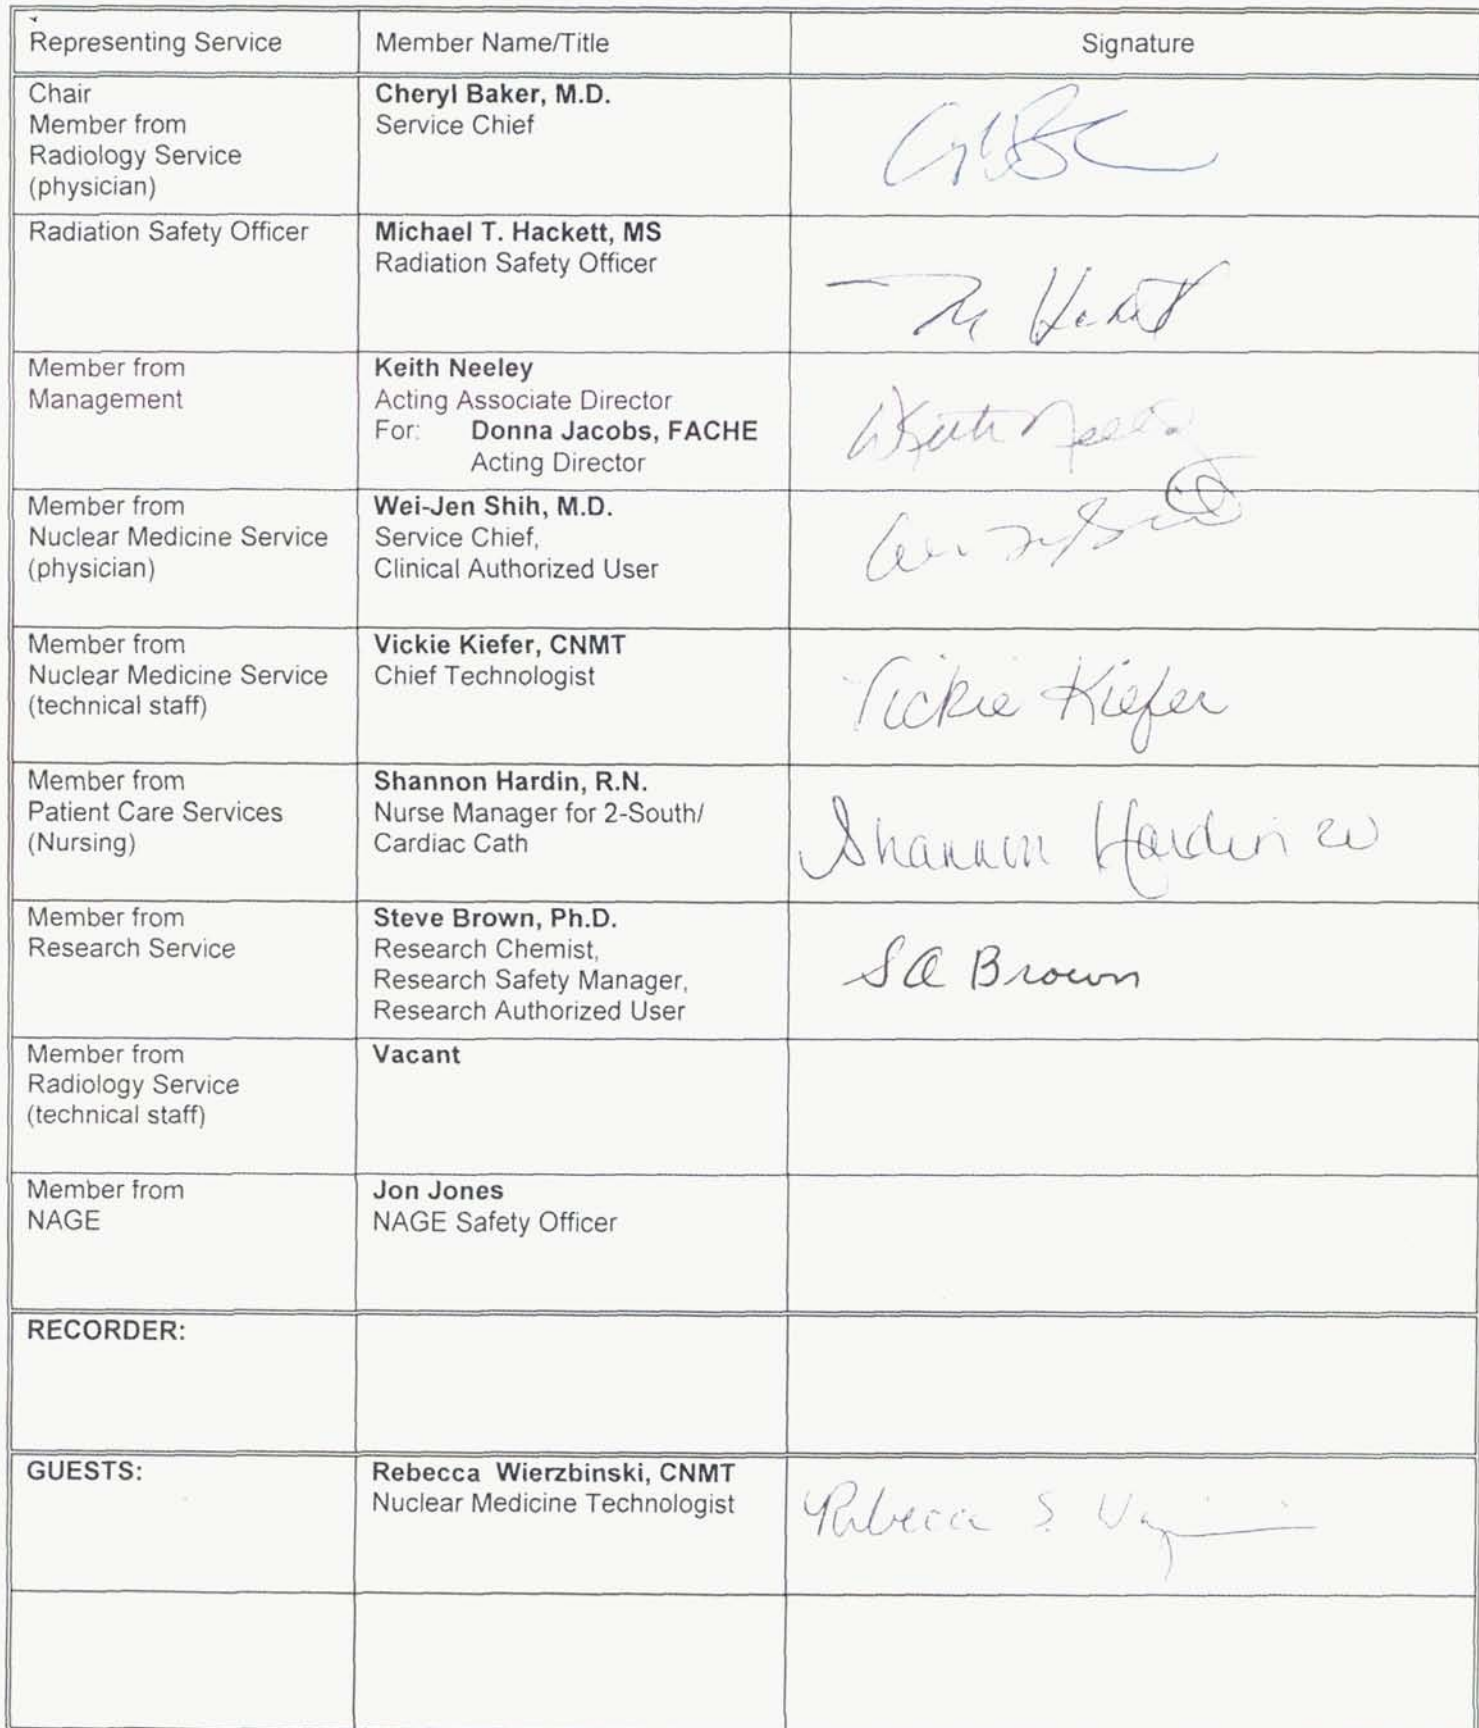 Representing Service
Member Name/Title
Signature
Chair
Member from
Radiology Service
(physician)
Cheryl Baker, M.D.
Service Chief
Radiation Safety Officer
Michael T. Hackett, MS
Radiation Safety Officer
Member from
Management
Keith Neeley
Acting Associate Director
For: Donna Jacobs, FACHE
Acting Director
Keith Neeley
Member from
Nuclear Medicine Service
(physician)
Wei-Jen Shih, M.D.
Service Chief,
Clinical Authorized User
Member from
Nuclear Medicine Service
(technical staff)
Vickie Kiefer, CNMT
Chief Technologist
Vickie Kiefer
Member from
Patient Care Services
(Nursing)
Shannon Hardin, R.N.
Nurse Manager for 2-South/
Cardiac Cath
Shannon Hardin
Member from
Research Service
Steve Brown, Ph.D.
Research Chemist,
Research Safety Manager,
Research Authorized User
SA Brown
Member from
Radiology Service
(technical staff)
Vacant
Member from
NAGE
Jon Jones
NAGE Safety Officer
RECORDER:
GUESTS:
Rebecca Wierzbinski, CNMT
Nuclear Medicine Technologist
Rebecca S.